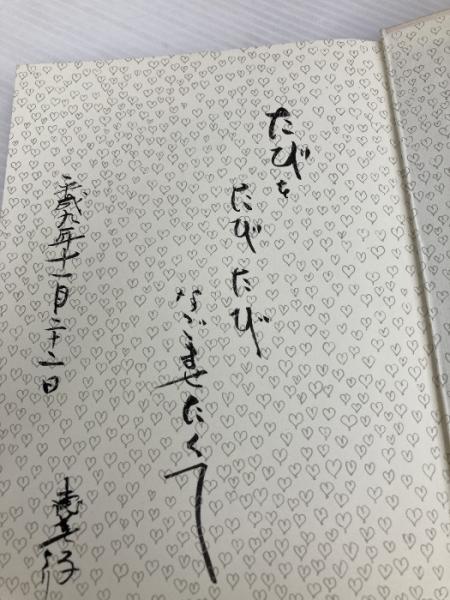 たびを
たびたび
なごませたくて
平成九年十一月二十二日